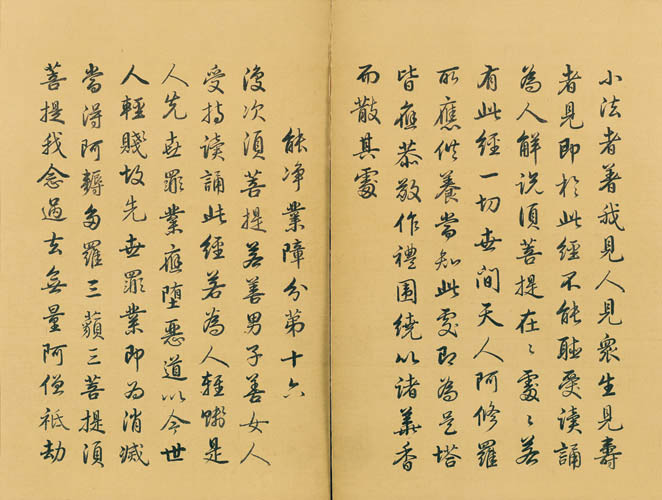 小法者著我見人見衆生見壽
者見即於此經不能聽受讀誦
為人解说須菩提在〻處〻若
有此經一切世间天人阿修羅
所應供養當知此處即為是塔
皆應恭敬作禮围繞以诸華香
而散其處
能净業障分第十六
復次須菩提若善男子善女人
受持读誦此經若為人輕賤是
人先世罪業應堕惡道以今世
人輕賤故先世罪業即为消滅
當得阿耨多羅三藐三菩提須
菩提我念過去無量阿僧祇劫